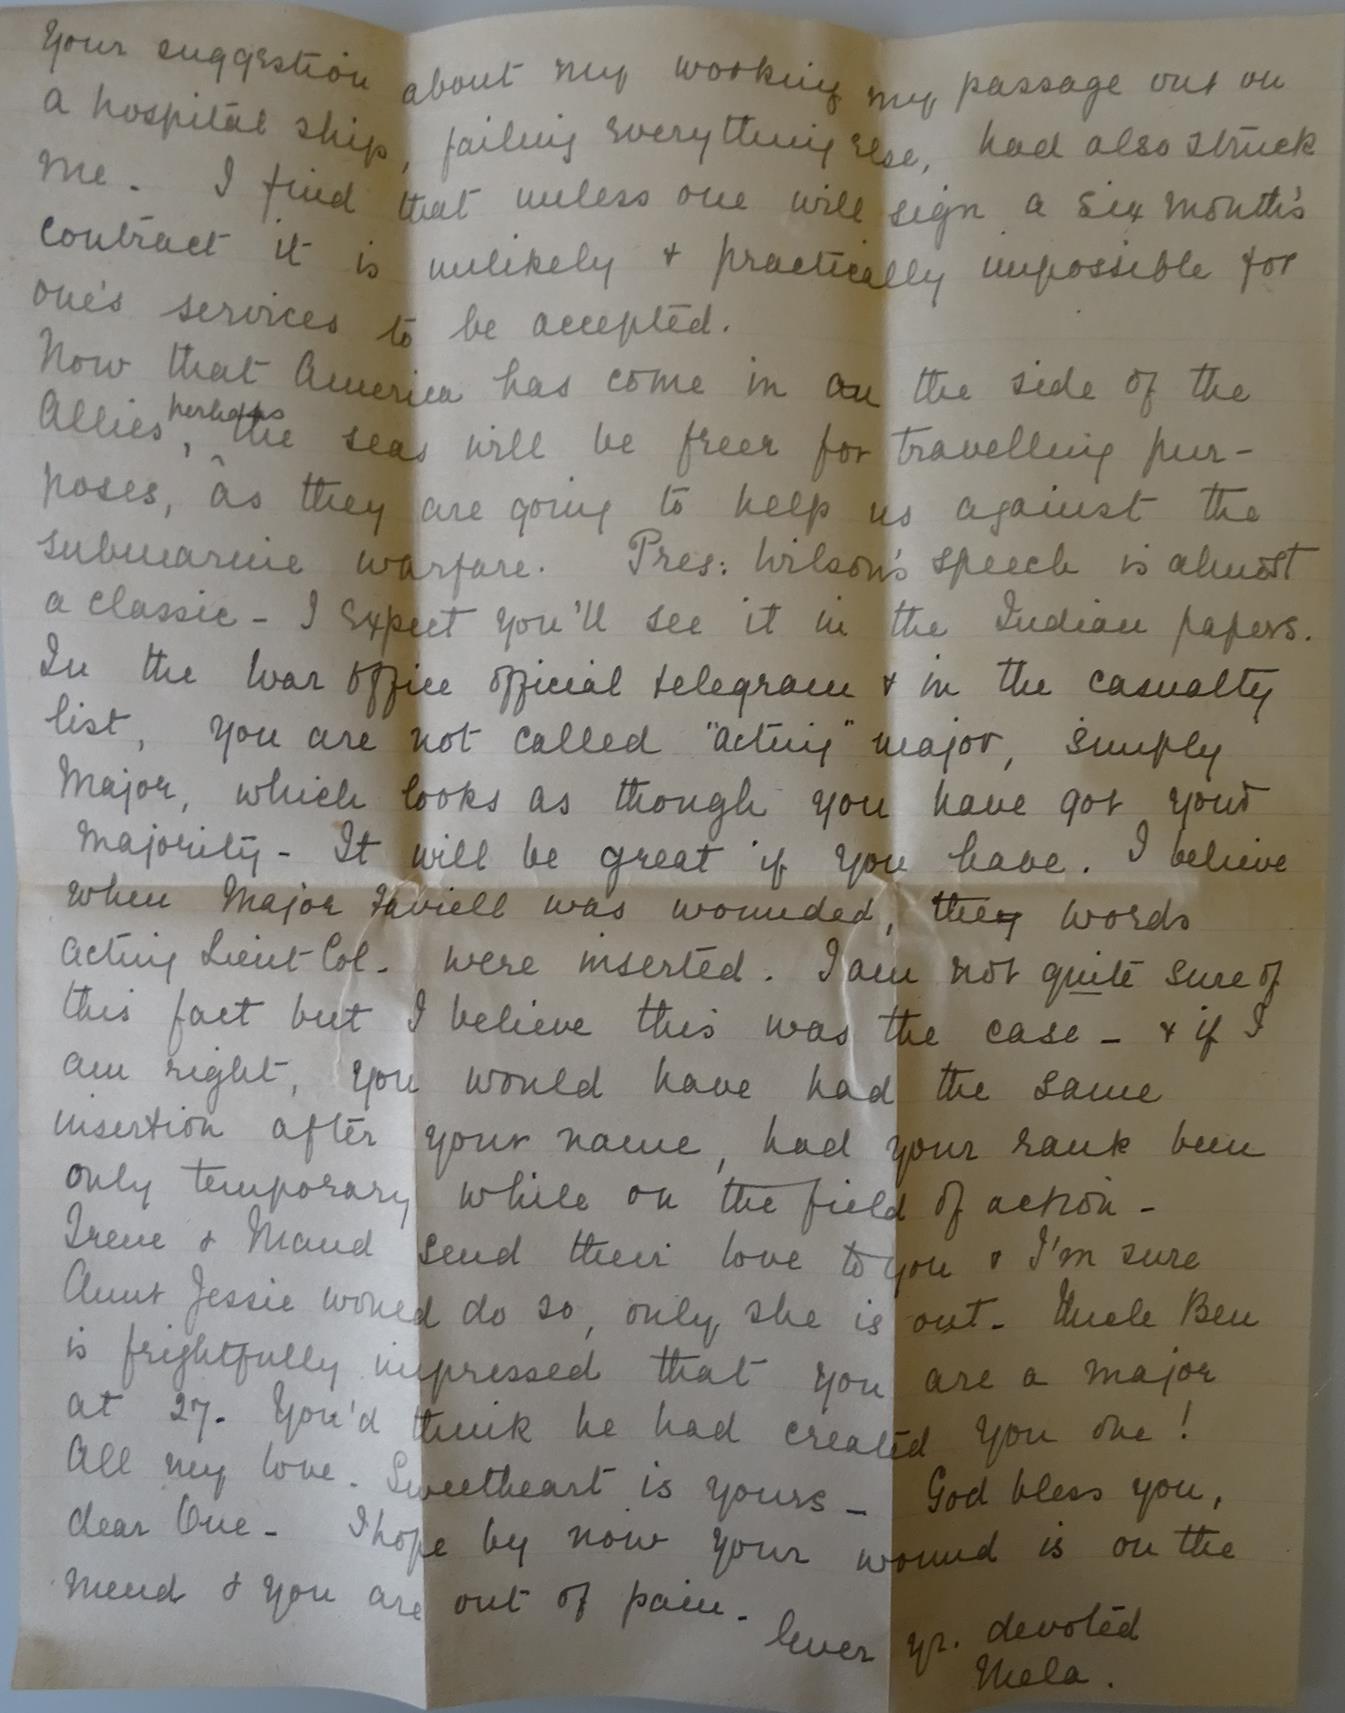 Your suggestion about my working my passage out on
a hospital ship, failing everything else, had also struck
me. I find that unless one will sign a six month's
contract it is unlikely & practically impossible for
one's services to be accepted.
Now that America has come in on the side of the
Allies, perhaps the seas will be freer for travelling pur-
poses, as they are going to help us against the
submarine warfare. Pres: Wilson's speech is almost
a classic - I expect you'll see it in the Indian papers.
In the War Office official telegram & in the casualty
list, you are not called "acting" major, simply
Major, which looks as though you have got your
majority - It will be great if you have. I believe
when Major Faviell was wounded, they words
acting Lieut Col. were inserted. I am not quite sure of
this fact but I believe this was the case - & if I
am right, you would have had the same
insertion after your name, had your rank been
only temporary while on the field of action -
Irene & Maud send their love to you & I'm sure
Aunt Jessie would do so, only she is out - Uncle Ben
is frightfully impressed that you are a major
at 27. You'd think he had created you one!
All my love. Sweetheart is yours - God bless you,
dear One - I hope by now your wound is on the
mend & you are out of pain -
Ever yr. devoted
Mela.